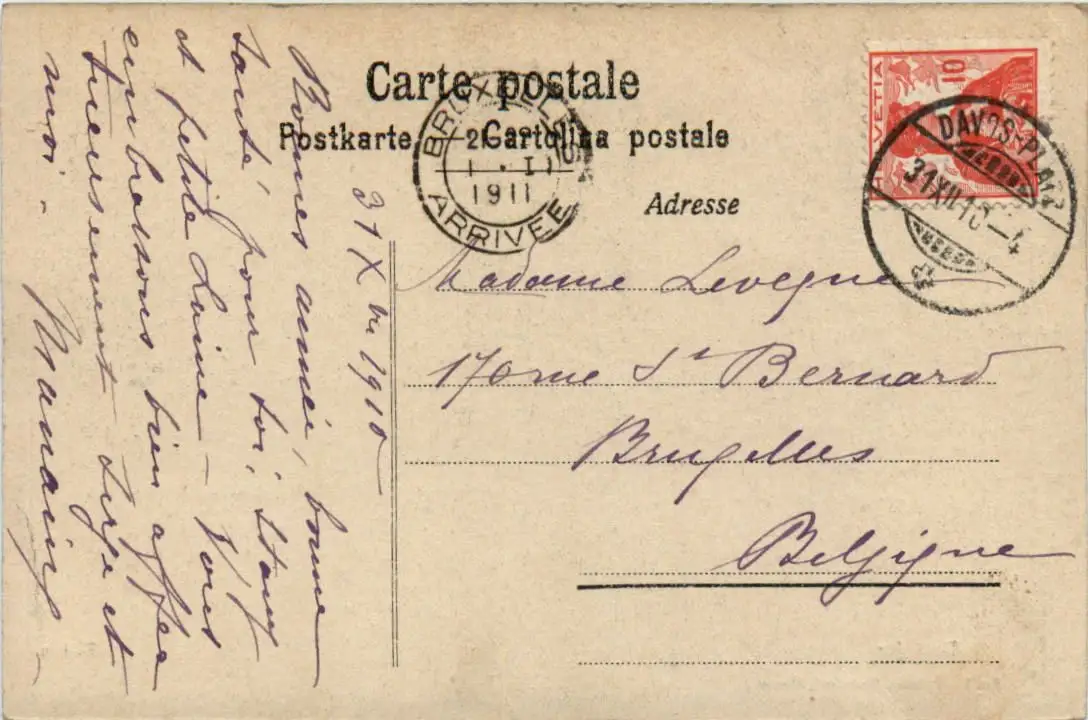 Carte postale
Postkarte Cartolina postale
Adresse
BRUXELLES
1 - I
1911
ARRIVÉE
HELVETIA
10
DAVOS-PLATZ
31.XII.10 - 4
31 Xbre 1910
Bonnes année, bonne
santé, pour toi, Stany
et petite Laine - Vous
embrassons bien affec
tueusement Serge et
moi -
Madame Levegne
170 rue St Bernard
Bruxelles
Belgique